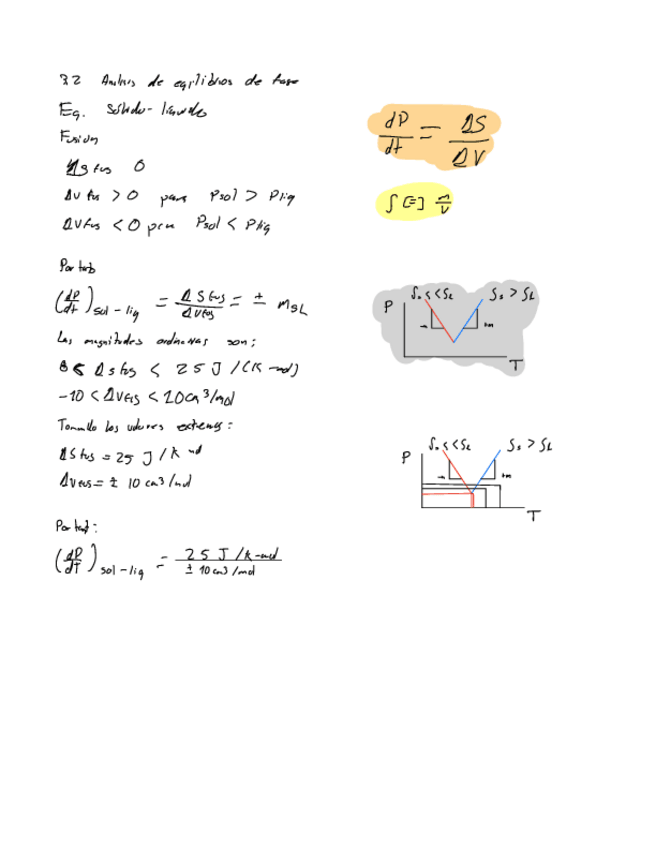 3.2 Analisis de eqilibrios de fase
Eq. Sólido-líquido
Fusion
ΔS fus 0
ΔV fus > 0 para ρsol > ρliq
ΔVfus < 0 para ρsol < ρliq
Por tanto
(dP/dt) sol-liq = ΔS fus / ΔVfus = ± m SL
Las magnitudes ordinarias son:
8 < ΔS fus < 25 J/(K-mol)
-10 < ΔVfus < 10 cm³/mol
Tomando los valores extremos:
ΔS fus = 25 J/K mol
ΔVfus = ± 10 cm3/mol
Por tanto:
(dP/dt) sol-liq = 25 J/K-mol / ± 10 cm3/mol
dP/dt = ΔS/ΔV
ρ [=] m/V
ρs < < ρL ρs > ρL
P
- +m
T
ρs < < ρL ρs > ρL
P
- +m
T